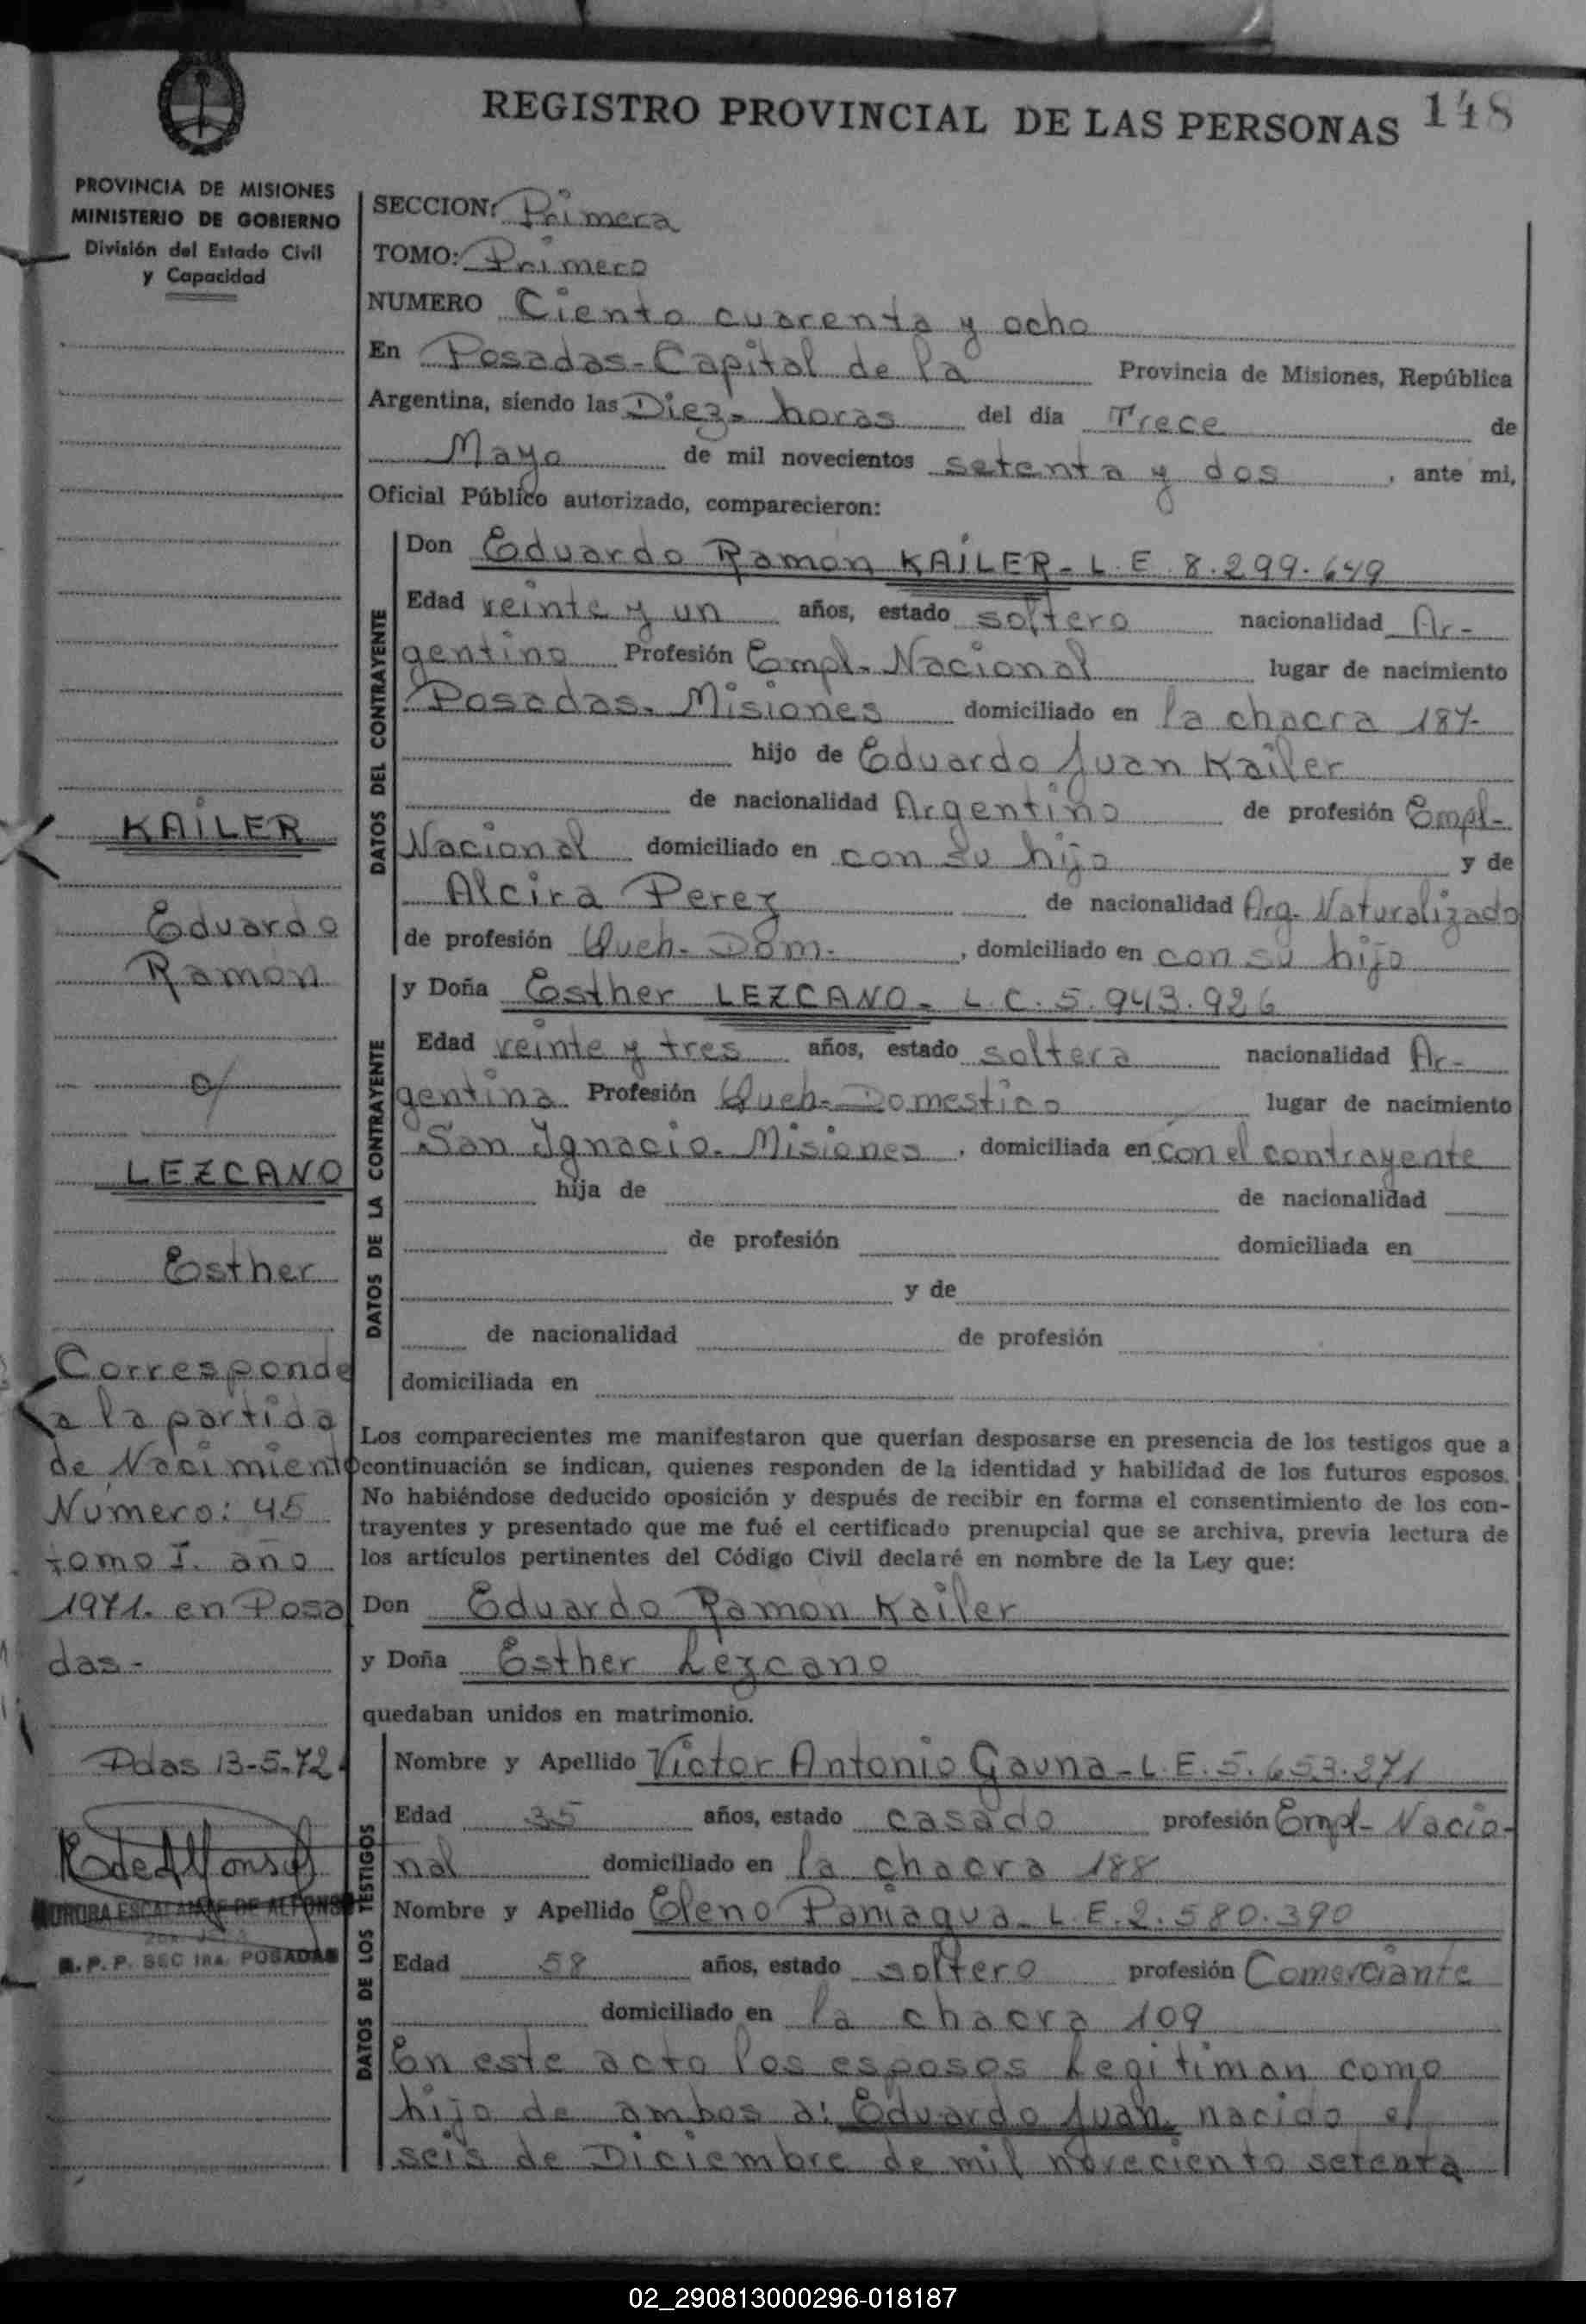 REGISTRO PROVINCIAL DE LAS PERSONAS 148
PROVINCIA DE MISIONES
MINISTERIO DE GOBIERNO
División del Estado Civil
y Capacidad
SECCION: Primera
TOMO: Primero
NUMERO Ciento cuarenta y ocho
En Posadas-Capital de la Provincia de Misiones, República
Argentina, siendo las Diez- horas del día Trece de
Mayo de mil novecientos setenta y dos, ante mi,
Oficial Público autorizado, comparecieron:
DATOS DEL CONTRAYENTE
Don Eduardo Ramón KAILER- L.E. 8.299.649
Edad veinte y un años, estado soltero nacionalidad Ar-
gentino Profesión Empl- Nacional lugar de nacimiento
Posadas. Misiones domiciliado en la chacra 187-
hijo de Eduardo Juan Kailer
de nacionalidad Argentino de profesión Empl-
Nacional domiciliado en con su hijo y de
Alcira Perez de nacionalidad Arg. Naturalizado
de profesión Queh- Dom-, domiciliado en con su hijo
DATOS DE LA CONTRAYENTE
y Doña Esther LEZCANO- L.C. 5.943.926
Edad veinte y tres años, estado soltera nacionalidad Ar-
gentina Profesión Queh- Domestico lugar de nacimiento
San Ignacio. Misiones, domiciliada en con el contrayente
hija de de nacionalidad
de profesión domiciliada en
y de
de nacionalidad de profesión
domiciliada en
Los comparecientes me manifestaron que querían desposarse en presencia de los testigos que a
continuación se indican, quienes responden de la identidad y habilidad de los futuros esposos.
No habiéndose deducido oposición y después de recibir en forma el consentimiento de los con-
trayentes y presentado que me fué el certificado prenupcial que se archiva, previa lectura de
los artículos pertinentes del Código Civil declaré en nombre de la Ley que:
Don Eduardo Ramon Kailer
y Doña Esther Lezcano
quedaban unidos en matrimonio.
DATOS DE LOS TESTIGOS
Nombre y Apellido Victor Antonio Gauna- L.E. 5.653.271
Edad 35 años, estado casado profesión Empl- Nacio-
nal domiciliado en la chacra 188
Nombre y Apellido Eleno Paniagua- L.E. 2.580.390
Edad 58 años, estado soltero profesión Comerciante
domiciliado en la chacra 109
En este acto los esposos Legitiman como
hijo de ambos a: Eduardo Juan, nacido el
seis de Diciembre de mil noveciento setenta
KAILER
Eduardo
Ramón
c/
LEZCANO
Esther
Corresponde
a la partida
de Nacimiento
Número: 45
tomo I. año
1971. en Posa
das-
Pdas 13-5-72
AURORA ESCALANTE DE ALFONSO
R.P.P. SEC 1RA. POSADAS
02_290813000296-018187